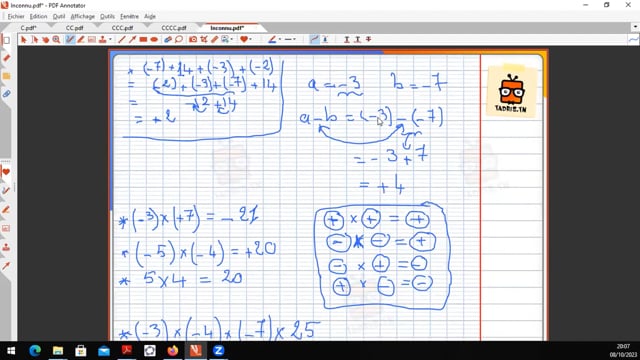 inconnu.pdf* - PDF Annotator
Fichier Edition Affichage Outil Fenêtre Aide
C.pdf* CC.pdf CCC.pdf CCCC.pdf inconnu.pdf*
* (-7) + 14 + (-3) + (-2)
= (-2) + (-3) + (-7) + 14
= -12 + 14
= +2
a = -3 b = -7
a - b = (-3) - (-7)
= -3 + 7
= +4
TADRIS.TN
* (-3) × (+7) = -21
* (-5) × (-4) = +20
* 5 × 4 = 20
+ × + = +
- × - = +
- × + = -
+ × - = -
* (-3) × (-4) × (-7) × 25
20:07
08/10/2023